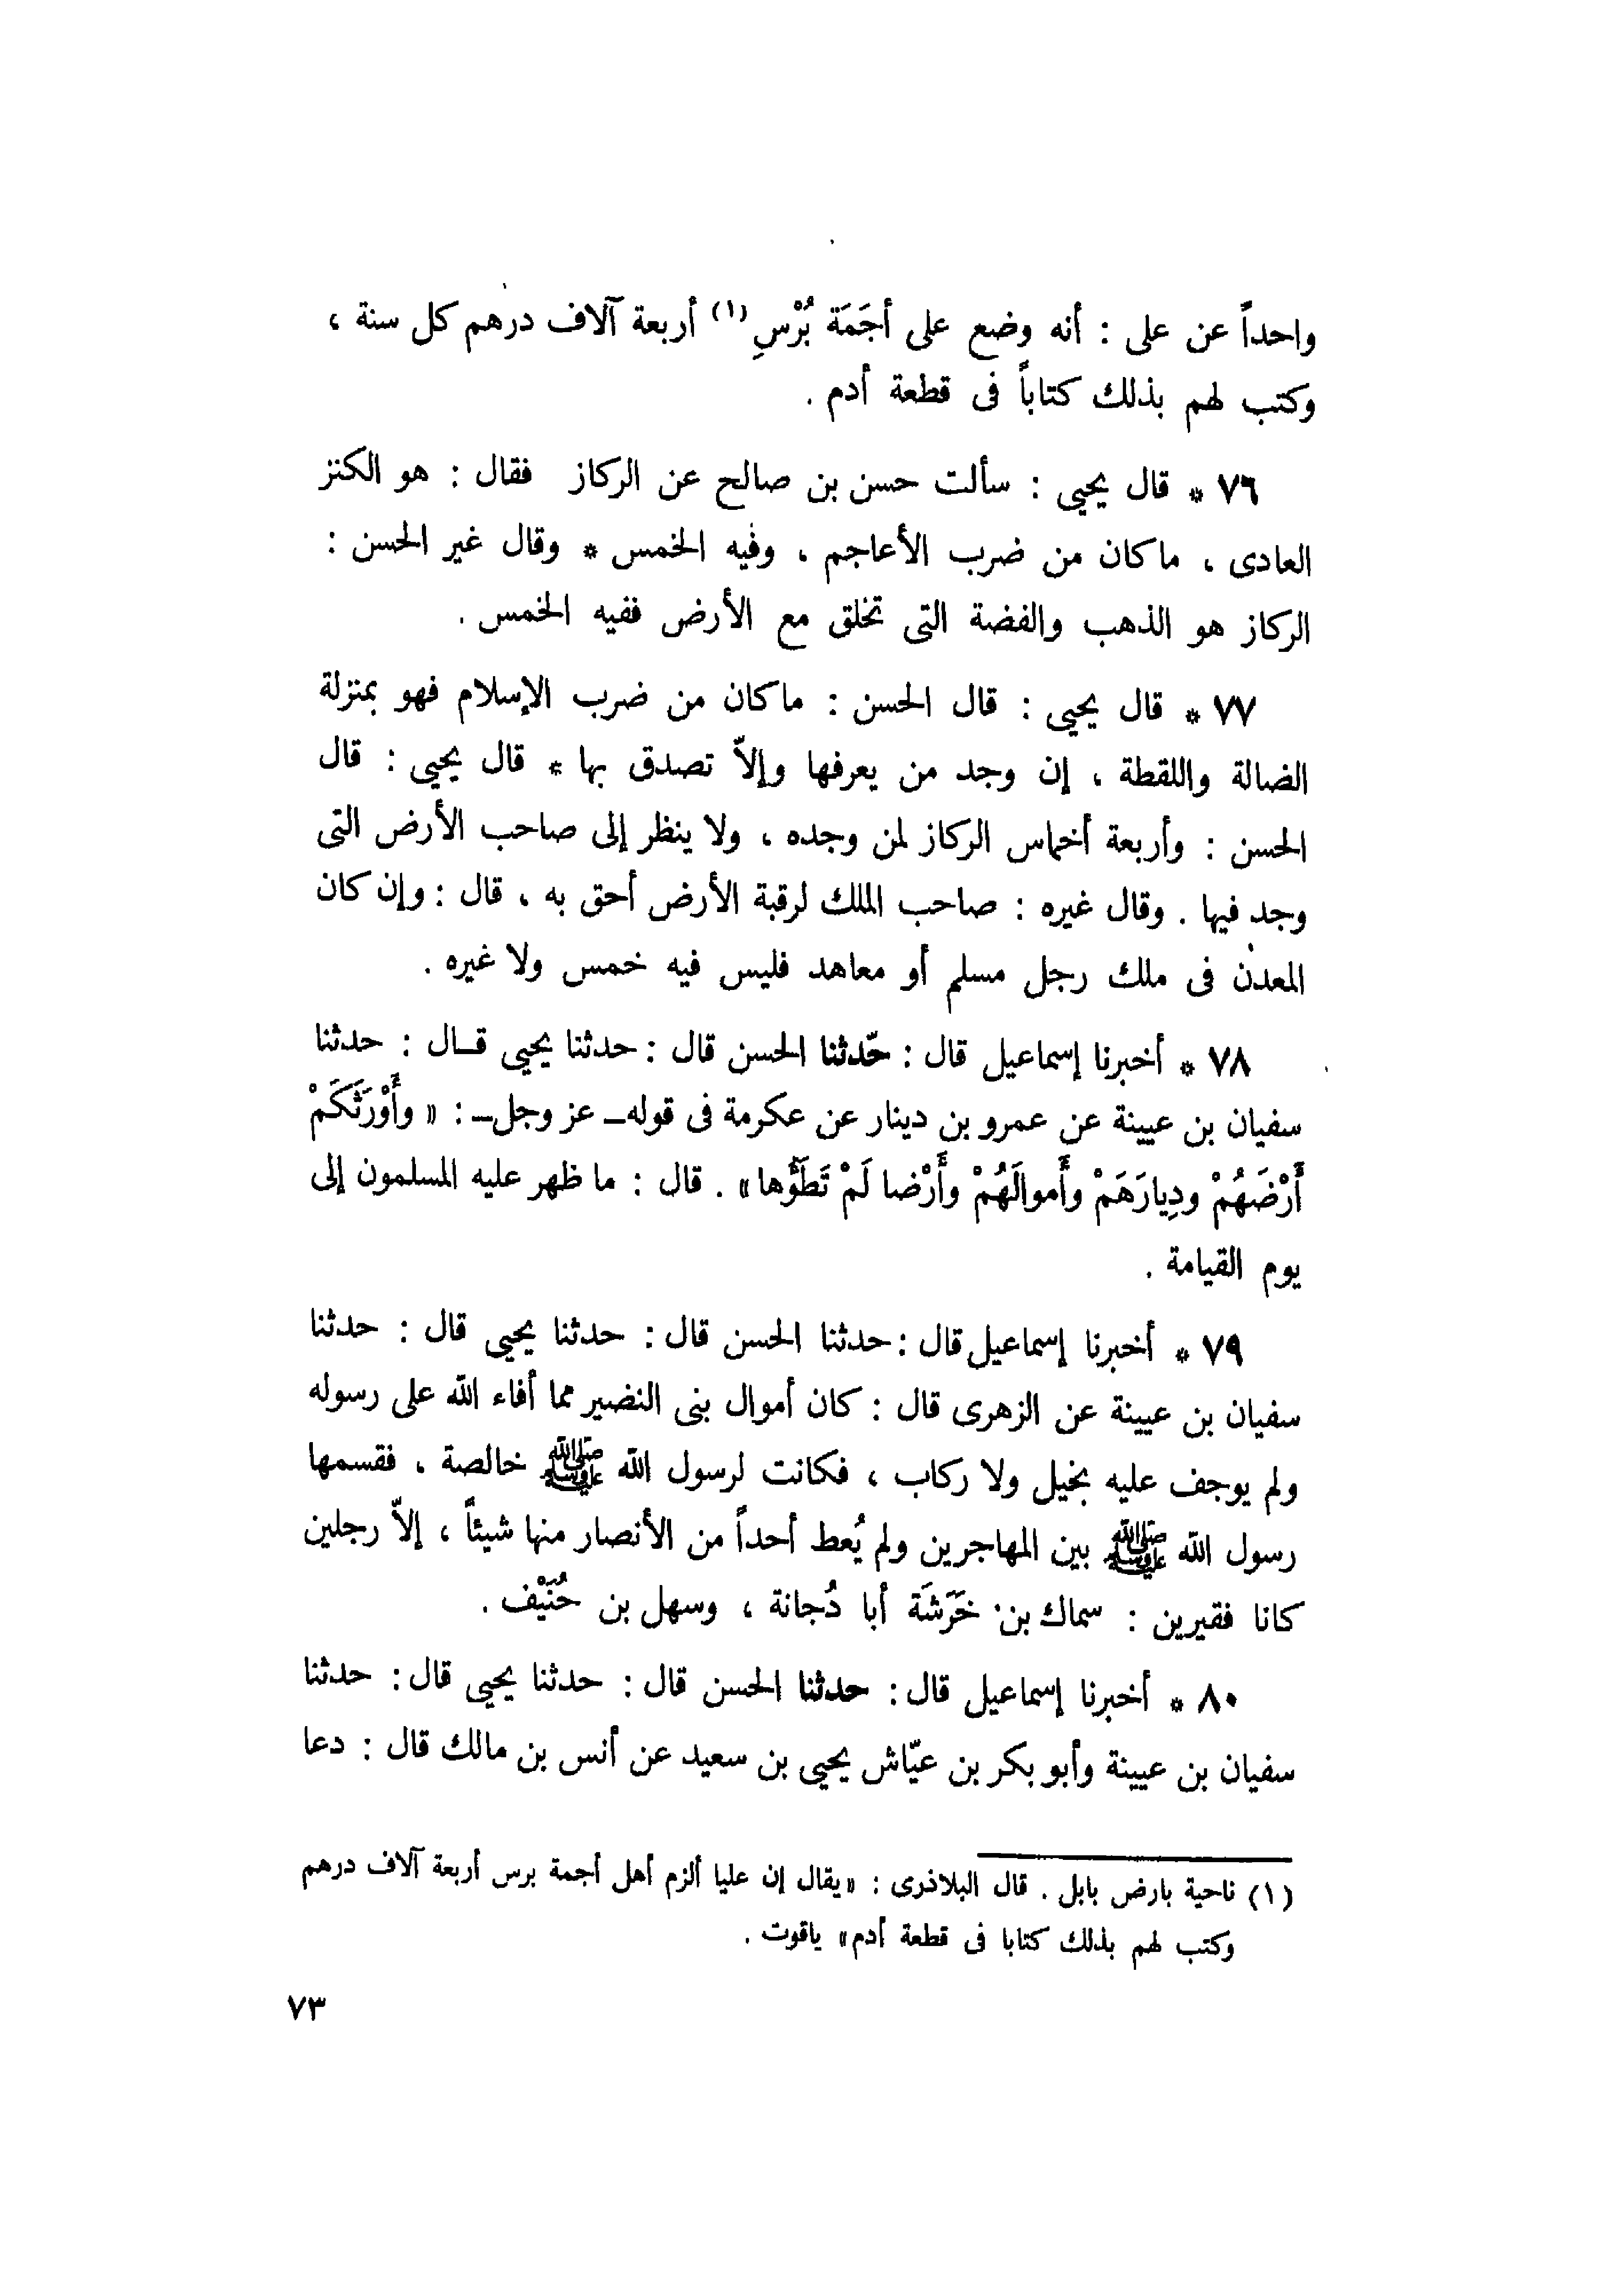 واحداً عن على : أنه وضع على أَجَمَة بُرْسِ (١) أربعة آلاف درهم كل سنة ،
وكتب لهم بذلك كتاباً فى قطعة أدم .
٧٦ * قال يحيى : سألت حسن بن صالح عن الركاز فقال : هو الكنز
العادى ، ماكان من ضرب الأعاجم ، وفيه الخمس * وقال غير الحسن :
الركاز هو الذهب والفضة التى تخلق مع الأرض ففيه الخمس .
٧٧ * قال يحيى : قال الحسن : ماكان من ضرب الإسلام فهو بمنزلة
الضالة واللقطة ، إن وجد من يعرفها وإلاّ تصدق بها * قال يحيى : قال
الحسن : وأربعة أخماس الركاز لمن وجده ، ولا ينظر إلى صاحب الأرض التى
وجد فيها . وقال غيره : صاحب الملك لرقبة الأرض أحق به ، قال : وإن كان
المعدن فى ملك رجل مسلم أو معاهد فليس فيه خمس ولا غيره .
٧٨ * أخبرنا إسماعيل قال : حدّثنا الحسن قال : حدثنا يحيى قـال : حدثنا
سفيان بن عيينة عن عمرو بن دينار عن عكرمة فى قوله ـ عز وجل ـ : « وأَوْرَثَكَمْ
أَرْضَهُمْ ودِيارَهَمْ وأَموالَهُمْ وأَرْضا لَمْ تَطَؤُها » . قال : ما ظهر عليه المسلمون إلى
يوم القيامة .
٧٩ * أخبرنا إسماعيل قال : حدثنا الحسن قال : حدثنا يحيى قال : حدثنا
سفيان بن عيينة عن الزهرى قال : كان أموال بنى النضير مما أفاء الله على رسوله
ولم يوجف عليه بخيل ولا ركاب ، فكانت لرسول الله ﷺ خالصة ، فقسمها
رسول الله ﷺ بين المهاجرين ولم يُعط أحداً من الأنصار منها شيئاً ، إلاّ رجلين
كانا فقيرين : سماك بن خَرَشَة أبا دُجانة ، وسهل بن حُنَيْف .
٨٠ * أخبرنا إسماعيل قال : حدثنا الحسن قال : حدثنا يحيى قال : حدثنا
سفيان بن عيينة وأبو بكر بن عيّاش يحيى بن سعيد عن أنس بن مالك قال : دعا
(١) ناحية بارض بابل . قال البلاذرى : « يقال إن عليا ألزم أهل أجمة برس أربعة آلاف درهم
وكتب لهم بذلك كتابا فى قطعة أدم » ياقوت .
٧٣